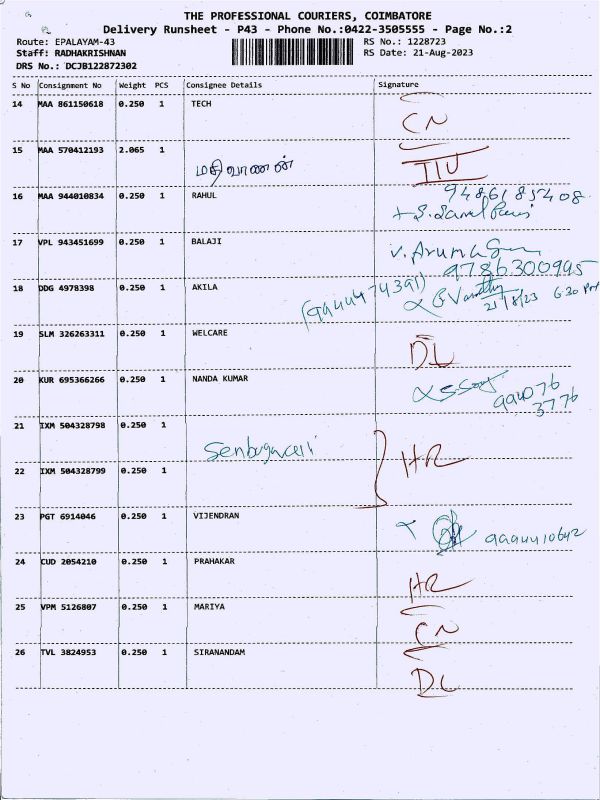 THE PROFESSIONAL COURIERS, COIMBATORE
Delivery Runsheet - P43 - Phone No.:0422-3505555 - Page No.:2
Route: EPALAYAM-43 RS No.: 1228723
Staff: RADHAKRISHNAN RS Date: 21-Aug-2023
DRS No.: DCJB122872302
S No Consignment No Weight PCS Consignee Details Signature
14 MAA 861150618 0.250 1 TECH
CN
15 MAA 570412193 2.065 1
மதிவாணன்
16 MAA 944010834 0.250 1 RAHUL
9486185408
17 VPL 943451699 0.250 1 BALAJI
V. Arumugam
9786300995
18 DDG 4978398 0.250 1 AKILA
(9444474391)
21/8/23 6 30 PM
19 SLM 326263311 0.250 1 WELCARE
DL
20 KUR 695366266 0.250 1 NANDA KUMAR
94076
3776
21 IXM 504328798 0.250 1
HR
22 IXM 504328799 0.250 1
23 PGT 6914046 0.250 1 VIJENDRAN
9994410642
24 CUD 2054210 0.250 1 PRAHAKAR
HR
25 VPM 5126807 0.250 1 MARIYA
CN
26 TVL 3824953 0.250 1 SIRANANDAM
DL